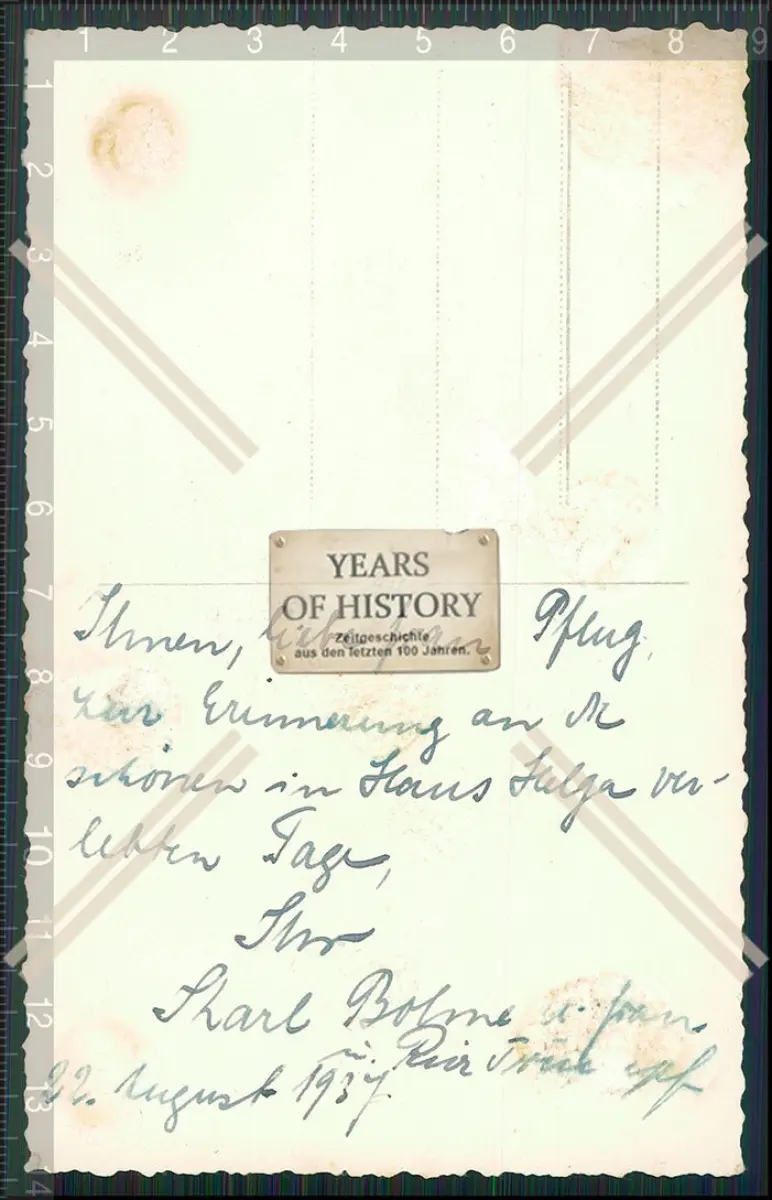 1 2 3 4 5 6 7 8 9
1
2
3
4
5
6
7
8
9
10
11
12
13
14
YEARS
OF HISTORY
Zeitgeschichte
aus den letzten 100 Jahren.
Ihnen, liebe Frau Pflug,
zur Erinnerung an die
schönen in Haus Helga ver-
lebten Tage,
Ihr
Karl u. Frau.
u.
22. August 1937.